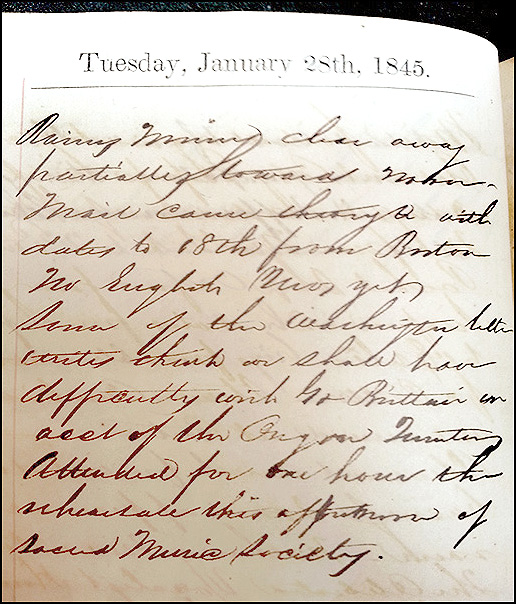 Tuesday, January 28th, 1845.
Rainy Morning clear away
partially toward noon.
Mail came through with
dates to 18th from Boston
No English News yet
Some of the Washington letter
writers think we shall have
difficulty with Gt Brittain on
acct of the Oregon Territory
Attended for one hour the
rehearsale this afternoon of
Sacred Music Society.